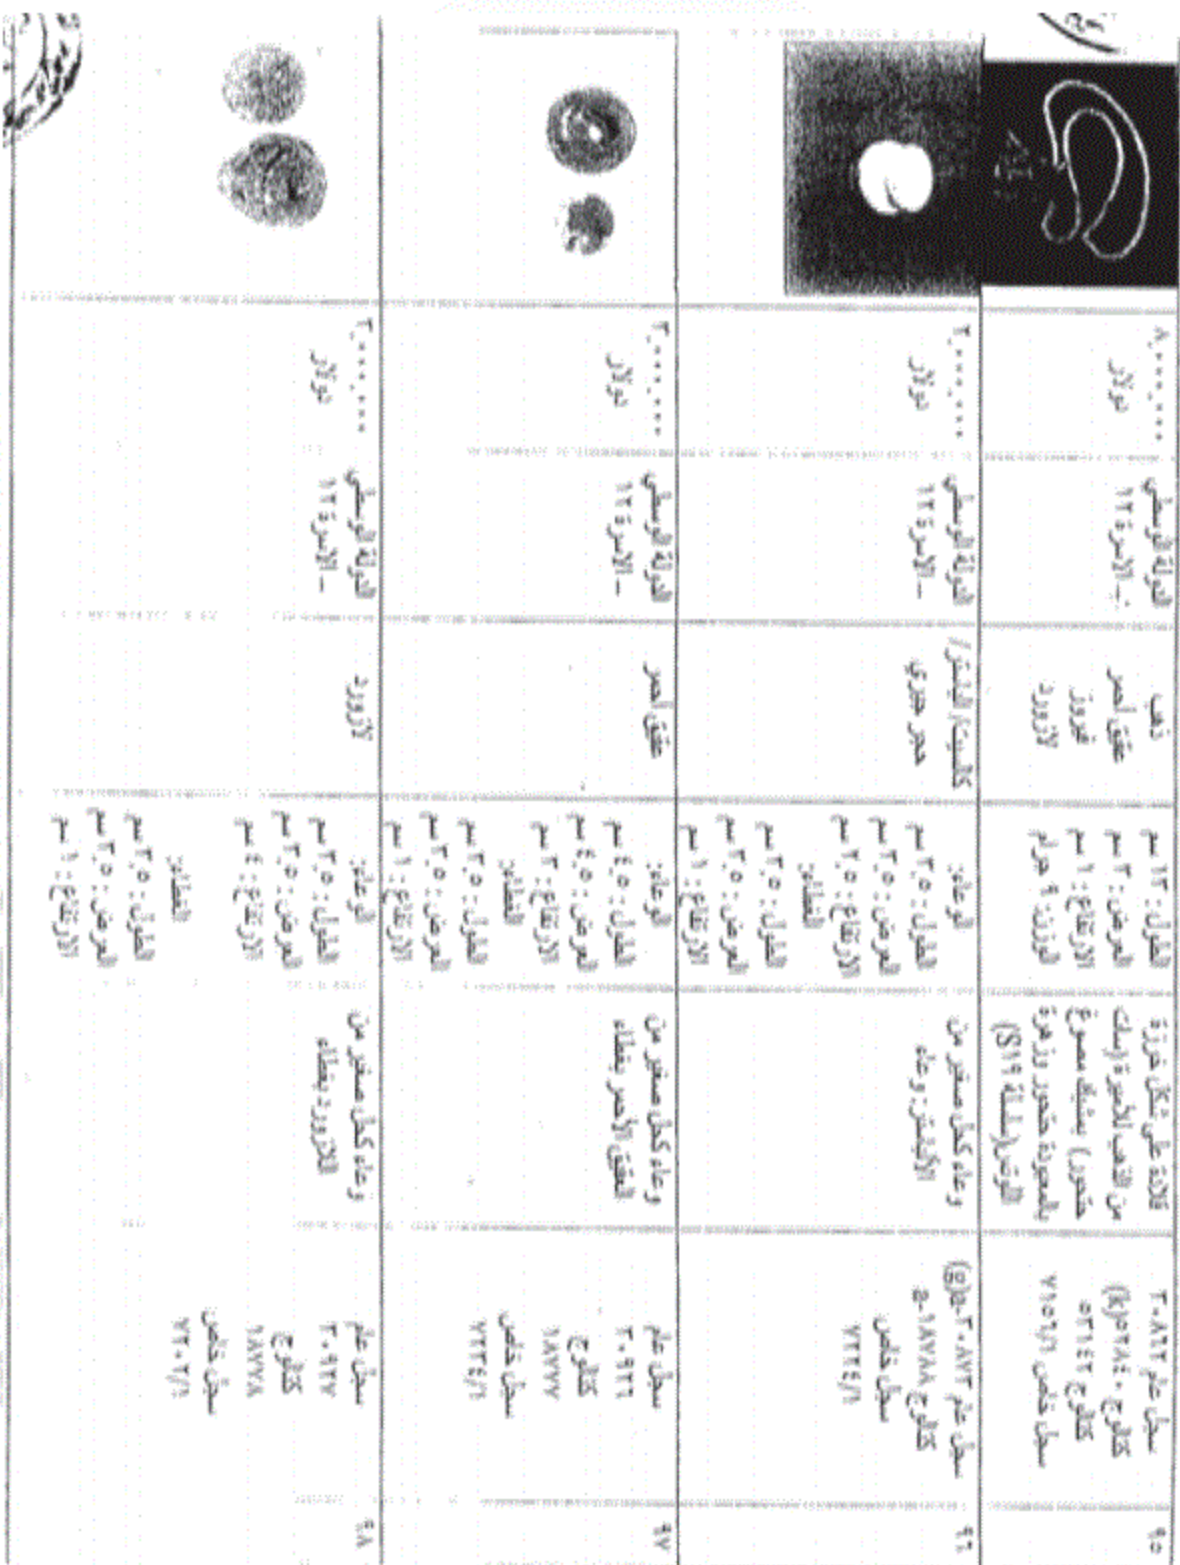 ٩٥
سجل عام ٣٠٨٦٢
كتالوج ٥٢٨٤٠(k)
كتالوج ٥٣١٤٢
سجل خاص ٧١٥٦/١
قلادة على شكل خرزة
من الذهب للأميرة (سات
حتحور) بشبك مصوغ
بالمعبودة حتحور وزهرة
اللوتس(سلسلة S١٩)
الطول: ١٢ سم
العرض: ٣ سم
الارتفاع: ١ سم
الوزن: ٩ جرام
ذهب
عقيق أحمر
فيروز
لازورد
الدولة الوسطى
– الاسرة ١٢
٨.٠٠٠.٠٠٠
دولار
٩٦
سجل عام ٣٠٨٧٣-a(g)
كتالوج ١٨٧٨٨-a
سجل خاص
٧٢٣٤/١
وعاء كحل صغير من
الألبستر: وعاء
الوعاء:
الطول: ٣,٥ سم
العرض: ٣,٥ سم
الارتفاع: ٣,٥ سم
الغطاء:
الطول: ٣,٥ سم
العرض: ٣,٥ سم
الارتفاع: ١ سم
كالسيت/ ألبستر/
حجر جيري
الدولة الوسطى
– الاسرة ١٢
٢.٠٠٠.٠٠٠
دولار
٩٧
سجل عام
٣٠٩٢٦
كتالوج
١٨٧٧٧
سجل خاص
٧٢٢٤/١
وعاء كحل صغير من
العقيق الأحمر بغطاء
الوعاء:
الطول: ٤,٥ سم
العرض: ٤,٥ سم
الارتفاع: ٣ سم
الغطاء:
الطول: ٣,٥ سم
العرض: ٣,٥ سم
الارتفاع: ١ سم
عقيق أحمر
الدولة الوسطى
– الاسرة ١٢
٣.٠٠٠.٠٠٠
دولار
٩٨
سجل عام
٣٠٩٢٧
كتالوج
١٨٧٧٨
سجل خاص
٧٢٠٢/١
وعاء كحل صغير من
اللازورد بغطاء
الوعاء:
الطول: ٣,٥ سم
العرض: ٣,٥ سم
الارتفاع: ٤ سم
الغطاء:
الطول: ٣,٥ سم
العرض: ٣,٥ سم
الارتفاع: ١ سم
لازورد
الدولة الوسطى
– الاسرة ١٢
٣.٠٠٠.٠٠٠
دولار